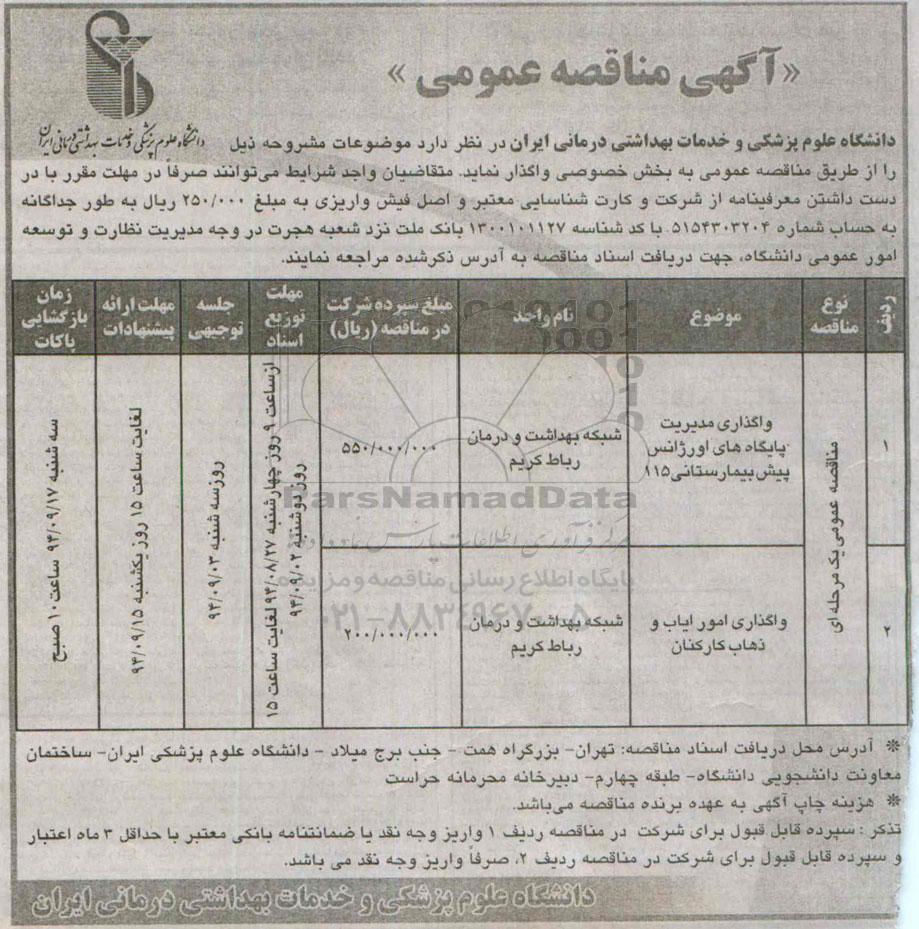 «آگهی مناقصه عمومی»
دانشگاه علوم پزشکی و خدمات بهداشتی درمانی ایران
دانشگاه علوم پزشکی و خدمات بهداشتی درمانی ایران در نظر دارد موضوعات مشروحه ذیل
را از طریق مناقصه عمومی به بخش خصوصی واگذار نماید. متقاضیان واجد شرایط می‌توانند صرفاً در مهلت مقرر با در
دست داشتن معرفینامه از شرکت و کارت شناسایی معتبر و اصل فیش واریزی به مبلغ ۲۵۰/۰۰۰ ریال به طور جداگانه
به حساب شماره ۵۱۵۴۳۰۳۲۰۴ با کد شناسه ۱۳۰۰۱۰۱۱۲۷ بانک ملت نزد شعبه هجرت در وجه مدیریت نظارت و توسعه
امور عمومی دانشگاه، جهت دریافت اسناد مناقصه به آدرس ذکرشده مراجعه نمایند.
ردیف
نوع مناقصه
موضوع
نام واحد
مبلغ سپرده شرکت در مناقصه (ریال)
مهلت توزیع اسناد
جلسه توجیهی
مهلت ارائه پیشنهادات
زمان بازگشایی پاکات
۱
مناقصه عمومی یک مرحله‌ای
واگذاری مدیریت
پایگاه های اورژانس
پیش بیمارستانی ۱۱۵
شبکه بهداشت و درمان
رباط کریم
۵۵۰/۰۰۰/۰۰۰
از ساعت ۹ روز چهارشنبه ۹۴/۰۸/۲۷ لغایت ساعت ۱۵
روز دوشنبه ۹۴/۰۹/۰۲
روز سه شنبه ۹۴/۰۹/۰۳
لغایت ساعت ۱۵ روز یکشنبه ۹۴/۰۹/۱۵
سه شنبه ۹۴/۰۹/۱۷ ساعت ۱۰ صبح
۲
واگذاری امور ایاب و
ذهاب کارکنان
شبکه بهداشت و درمان
رباط کریم
۲۰۰/۰۰۰/۰۰۰
ParsNamadData
مرکز فرآوری اطلاعات پارس نماد داده‌ها
پایگاه اطلاع رسانی مناقصه و مزایده
۰۲۱-۸۸۳۴۹۶۷۰-۵
※ آدرس محل دریافت اسناد مناقصه: تهران- بزرگراه همت - جنب برج میلاد - دانشگاه علوم پزشکی ایران- ساختمان
معاونت دانشجویی دانشگاه- طبقه چهارم- دبیرخانه محرمانه حراست
※ هزینه چاپ آگهی به عهده برنده مناقصه می‌باشد.
تذکر : سپرده قابل قبول برای شرکت در مناقصه ردیف ۱ واریز وجه نقد یا ضمانتنامه بانکی معتبر با حداقل ۳ ماه اعتبار
و سپرده قابل قبول برای شرکت در مناقصه ردیف ۲، صرفاً واریز وجه نقد می باشد.
دانشگاه علوم پزشکی و خدمات بهداشتی درمانی ایران